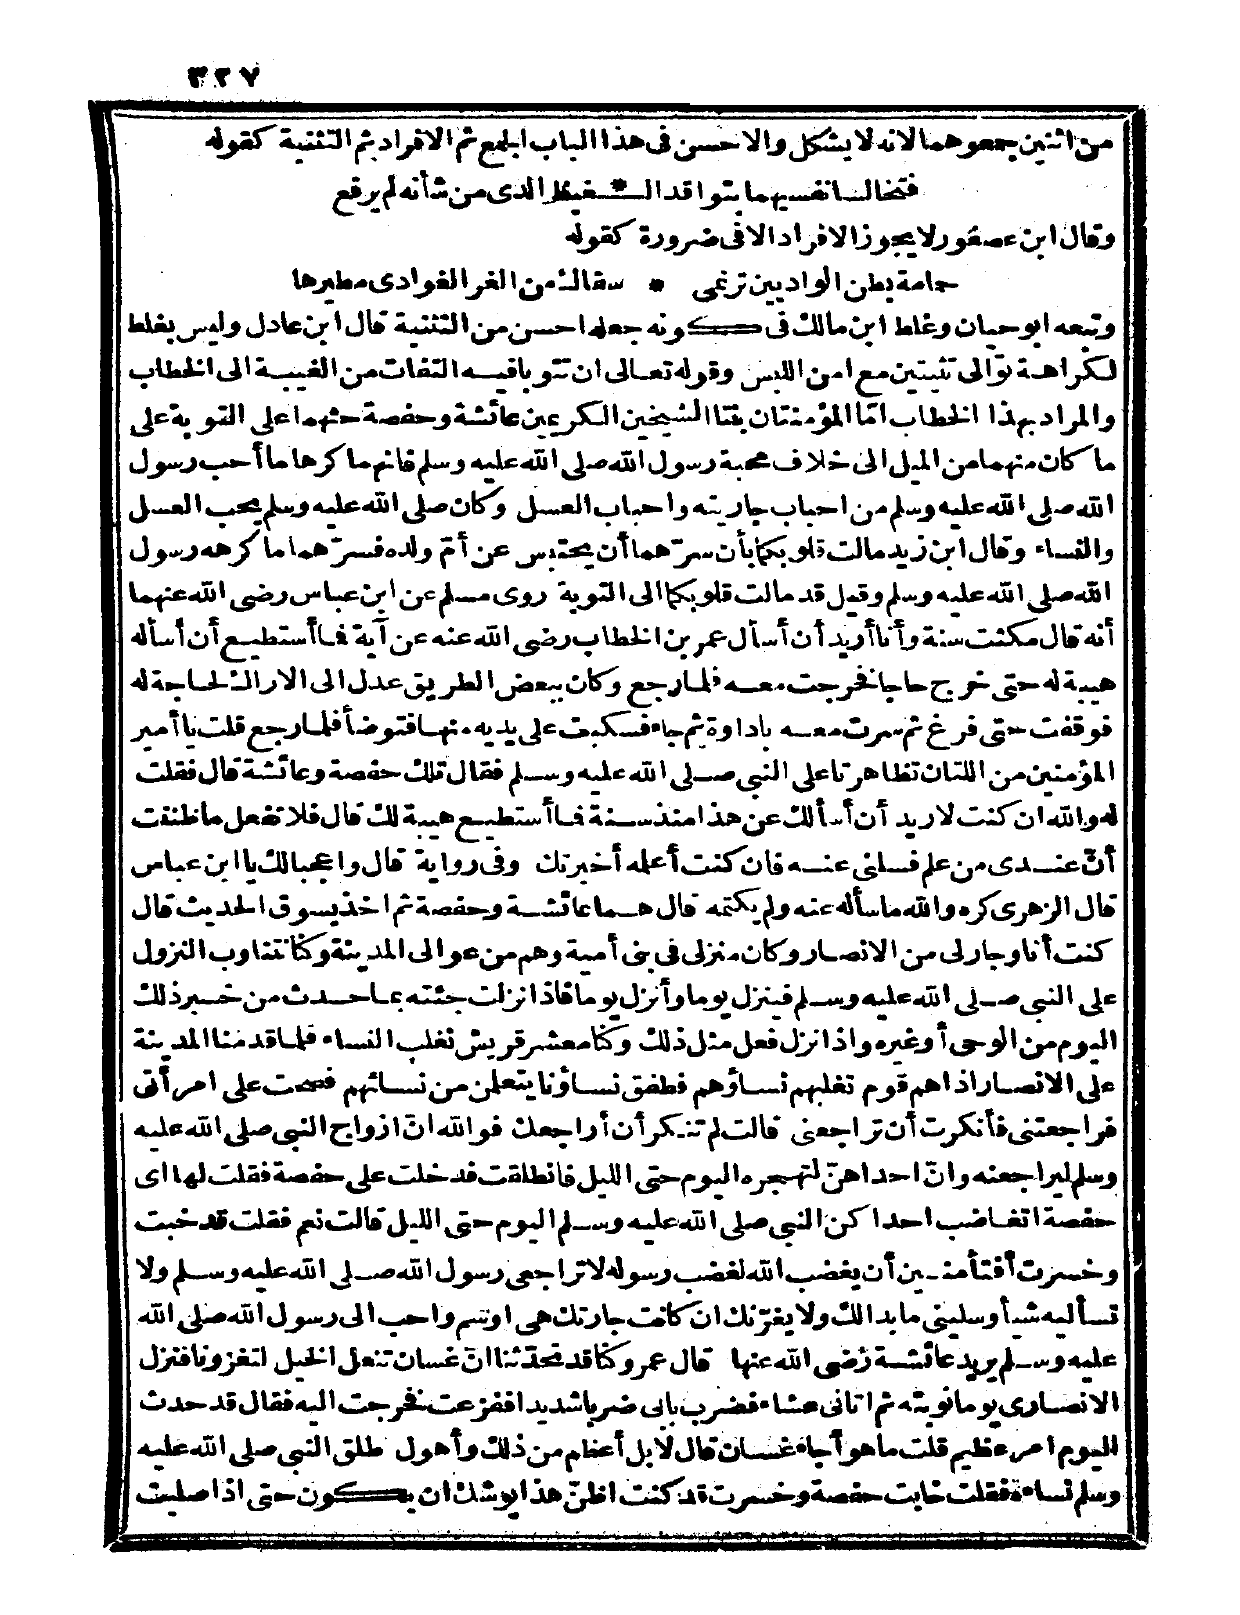 ٣٢٧
من اثنين جمعوهما لانه لا يشكل والاحسن فى هذا الباب الجمع ثم الافراد ثم التثنية كقوله
فتخالسا نفسيهما بنوافذ * الغيظ الذى من شأنه لم يرفع
وقال ابن عصفور لا يجوز الافراد الا فى ضرورة كقوله
حمامة بطن الواديين ترنمى * سقاك من الغر الغوادى مطيرها
وتبعه ابو حيان وغلط ابن مالك فى كونه جعله احسن من التثنية قال ابن عادل وليس بغلط
لكراهة توالى تثنيتين مع امن اللبس وقوله تعالى ان تتوبا فيه التفات من الغيبة الى الخطاب
والمراد بهذا الخطاب امّا المؤمنتان بنتا الشيخين الكريمين عائشة وحفصة حثهما على التوبة على
ما كان منهما من الميل الى خلاف محبة رسول الله صلى الله عليه وسلم فانهم ما كرها ما أحب رسول
الله صلى الله عليه وسلم من اجتاب جاريته واجتاب العسل وكان صلى الله عليه وسلم يحب العسل
والنساء وقال ابن زيد مالت قلوبكما بأن سرّهما أن يحتبس عن أمّ ولده فسرّهما ما كرهه رسول
الله صلى الله عليه وسلم وقيل قد مالت قلوبكما الى التوبة روى مسلم عن ابن عباس رضى الله عنهما
أنه قال مكثت سنة وأنا أريد أن أسأل عمر بن الخطاب رضى الله عنه عن آية فما أستطيع أن أسأله
هيبة له حتى خرج حاجا فخرجت معه فلما رجع وكان ببعض الطريق عدل الى الاراك لحاجة له
فوقفت حتى فرغ ثم سرت معه باداوة ثم جاء فسكبت على يديه منها فتوضأ فلما رجع قلت يا أمير
المؤمنين من اللتان تظاهرتا على النبى صلى الله عليه وسلم فقال تلك حفصة وعائشة قال فقلت
له والله ان كنت لاريد أن أسألك عن هذا منذ سنة فما أستطيع هيبة لك قال فلا تفعل ما ظننت
أنّ عندى من علم فسلنى عنه فان كنت أعلمه أخبرتك وفى رواية قال واعجبا لك يا ابن عباس
قال الزهرى كره والله ما سأله عنه ولم يكتمه قال هما عائشة وحفصة ثم اخذ يسوق الحديث قال
كنت أنا وجار لى من الانصار وكان منزلى فى بنى أمية وهم من عوالى المدينة وكنا نتناوب النزول
على النبى صلى الله عليه وسلم فينزل يوما وأنزل يوما فاذا نزلت جئته بما حدث من خبر ذلك
اليوم من الوحى أو غيره واذا نزل فعل مثل ذلك وكنا معشر قريش نغلب النساء فلما قدمنا المدينة
على الانصار اذا هم قوم تغلبهم نساؤهم فطفق نساؤنا يتعلمن من نسائهم فصحت على امرأتى
فراجعتنى فأنكرت أن تراجعنى قالت لم تنكر أن أراجعك فو الله انّ ازواج النبى صلى الله عليه
وسلم ليراجعنه وانّ احداهنّ لتهجره اليوم حتى الليل فانطلقت فدخلت على حفصة فقلت لها اى
حفصة اتغاضب احداكن النبى صلى الله عليه وسلم اليوم حتى الليل قالت نعم فقلت قد خبت
وخسرت أفتأمنين أن يغضب الله لغضب رسوله لا تراجعى رسول الله صلى الله عليه وسلم ولا
تسأليه شيأ وسلينى ما بدا لك ولا يغرّنك ان كانت جارتك هى اوسم واحب الى رسول الله صلى الله
عليه وسلم يريد عائشة رضى الله عنها قال عمر وكنا قد تحدّثنا انّ غسان تنعل الخيل لتغزونا فنزل
الانصارى يوما نوبته ثم اتانى عشاء فضرب بابى ضربا شديدا ففزعت فخرجت اليه فقال قد حدث
اليوم امر عظيم قلت ما هو أجاء غسان قال لا بل أعظم من ذلك وأهول طلق النبى صلى الله عليه
وسلم نساءه فقلت خابت حفصة وخسرت قد كنت اظنّ هذا يوشك ان يكون حتى اذا صليت